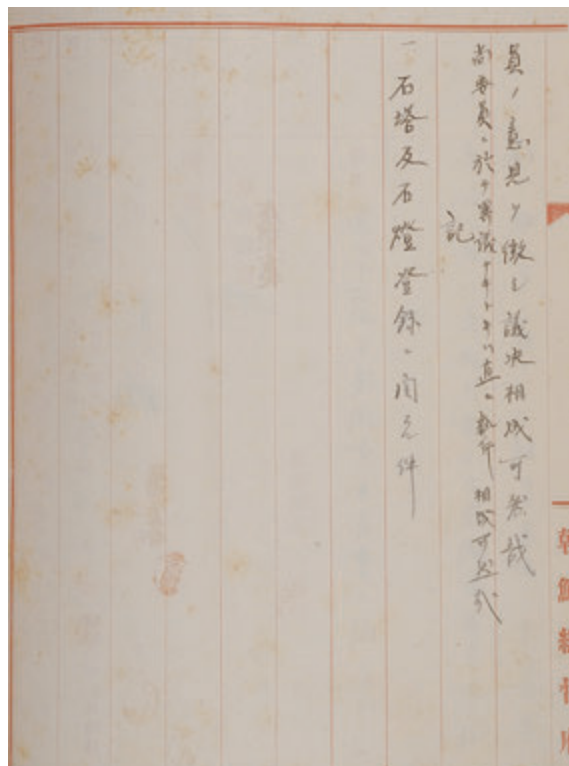 員ノ意見ヲ徴シ議決相成可然哉
尚委員ニ於テ異議ナキトキハ直ニ執行相成可然哉
記
一 石塔及石燈登録ニ関スル件
朝鮮總督府